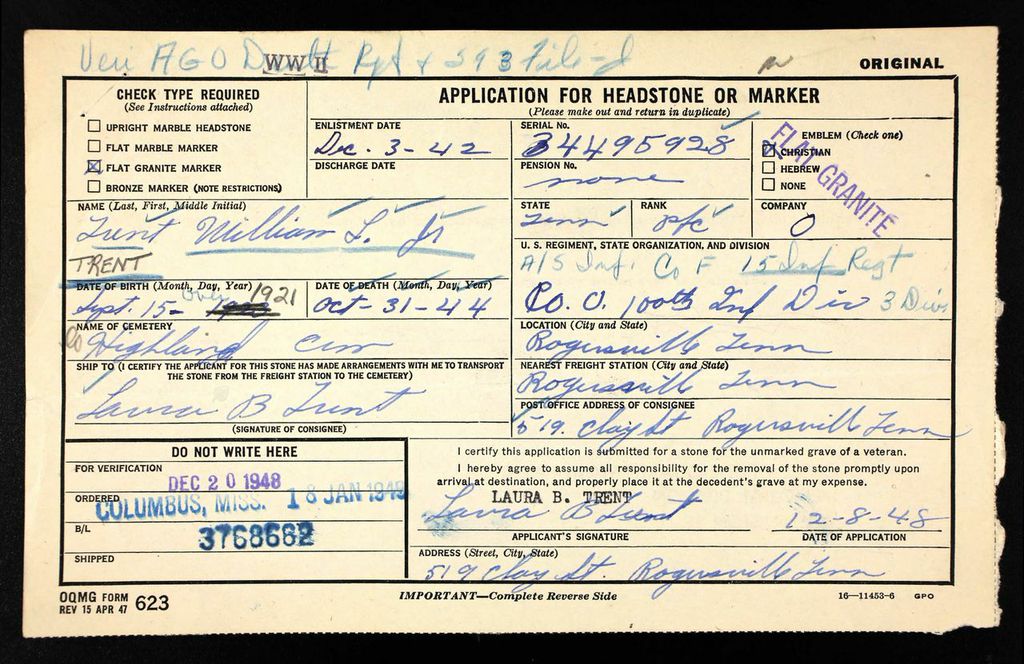 Veri AGO Death Rpt & 293 File-J
WW II
ORIGINAL
CHECK TYPE REQUIRED
(See Instructions attached)
UPRIGHT MARBLE HEADSTONE
FLAT MARBLE MARKER
FLAT GRANITE MARKER
BRONZE MARKER (NOTE RESTRICTIONS)
APPLICATION FOR HEADSTONE OR MARKER
(Please make out and return in duplicate)
ENLISTMENT DATE
Dec. 3-42
DISCHARGE DATE
SERIAL No.
34495928
PENSION No.
none
EMBLEM (Check one)
CHRISTIAN
HEBREW
NONE
FLAT GRANITE
NAME (Last, First, Middle Initial)
Trent William L. Jr
TRENT
STATE
Tenn
RANK
Pfc
COMPANY
O
U. S. REGIMENT, STATE ORGANIZATION, AND DIVISION
A/S Inf. Co F 15 Inf Regt
Co. O. 100th Inf Div 3 Div
DATE OF BIRTH (Month, Day, Year)
Sept. 15- 1921
DATE OF DEATH (Month, Day, Year)
Oct-31-44
NAME OF CEMETERY
Highland Cem
LOCATION (City and State)
Rogersville Tenn
SHIP TO (I CERTIFY THE APPLICANT FOR THIS STONE HAS MADE ARRANGEMENTS WITH ME TO TRANSPORT
THE STONE FROM THE FREIGHT STATION TO THE CEMETERY)
Laura B Trent
(SIGNATURE OF CONSIGNEE)
NEAREST FREIGHT STATION (City and State)
Rogersville Tenn
POST OFFICE ADDRESS OF CONSIGNEE
519. Clay St Rogersville Tenn
DO NOT WRITE HERE
FOR VERIFICATION
DEC 20 1948
ORDERED
COLUMBUS, MISS. 18 JAN 1949
B/L
3768682
SHIPPED
I certify this application is submitted for a stone for the unmarked grave of a veteran.
I hereby agree to assume all responsibility for the removal of the stone promptly upon
arrival at destination, and properly place it at the decedent's grave at my expense.
LAURA B. TRENT
Laura B Trent
12-8-48
APPLICANT'S SIGNATURE
DATE OF APPLICATION
ADDRESS (Street, City, State)
519 Clay St. Rogersville Tenn
OQMG FORM
REV 15 APR 47 623
IMPORTANT—Complete Reverse Side
16—11453-6 GPO